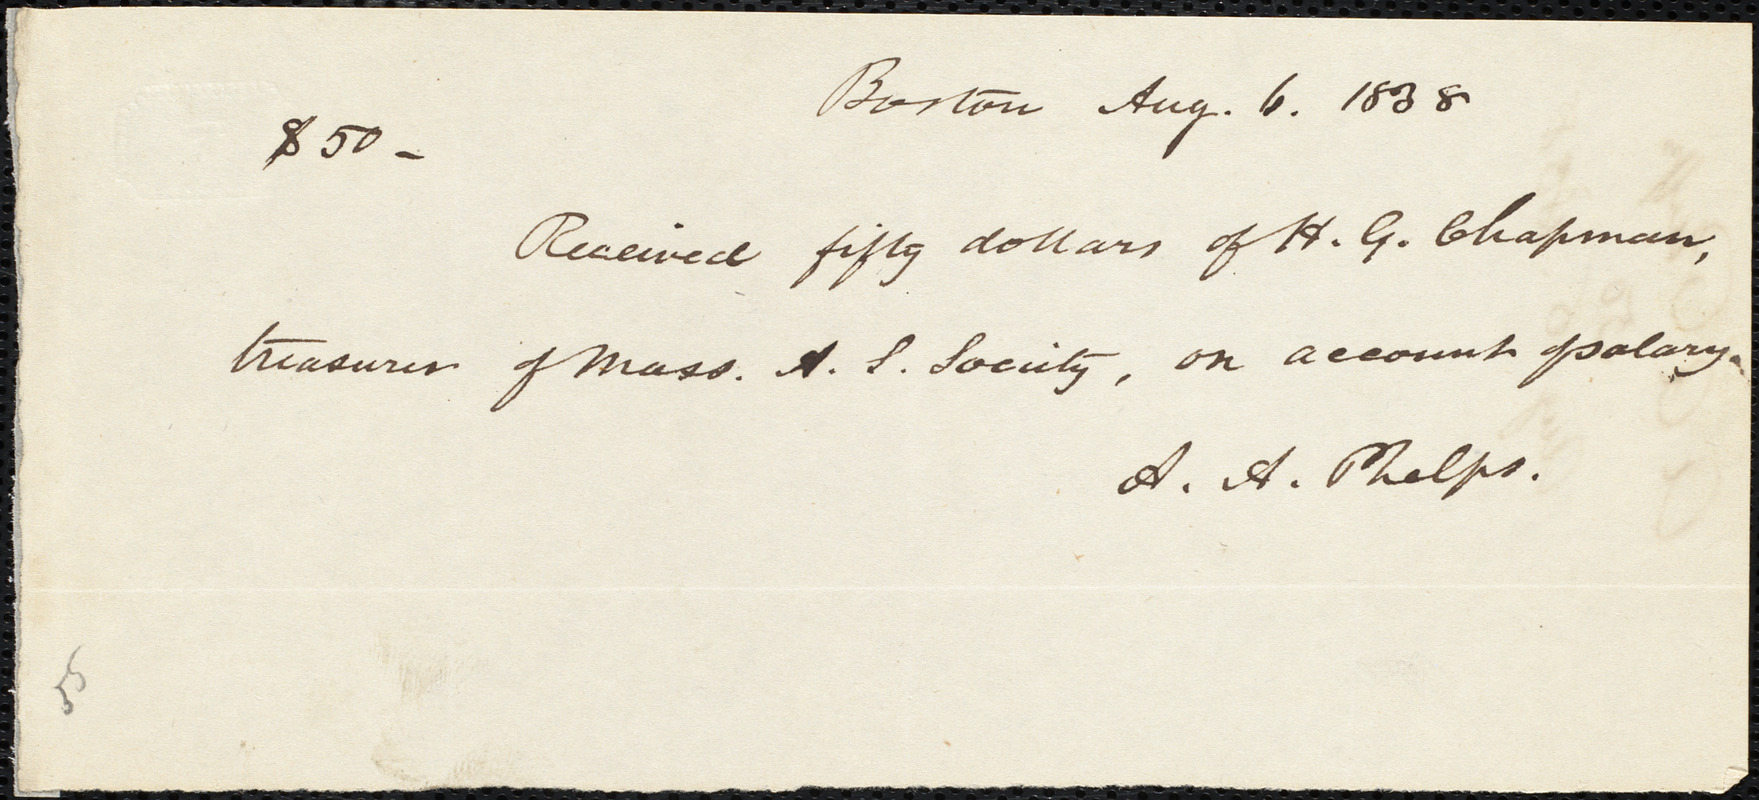 Boston Aug. 6. 1838
$50 -
Received fifty dollars of H. G. Chapman,
treasurer of Mass. A. S. Society, on account of salary.
A. A. Phelps.